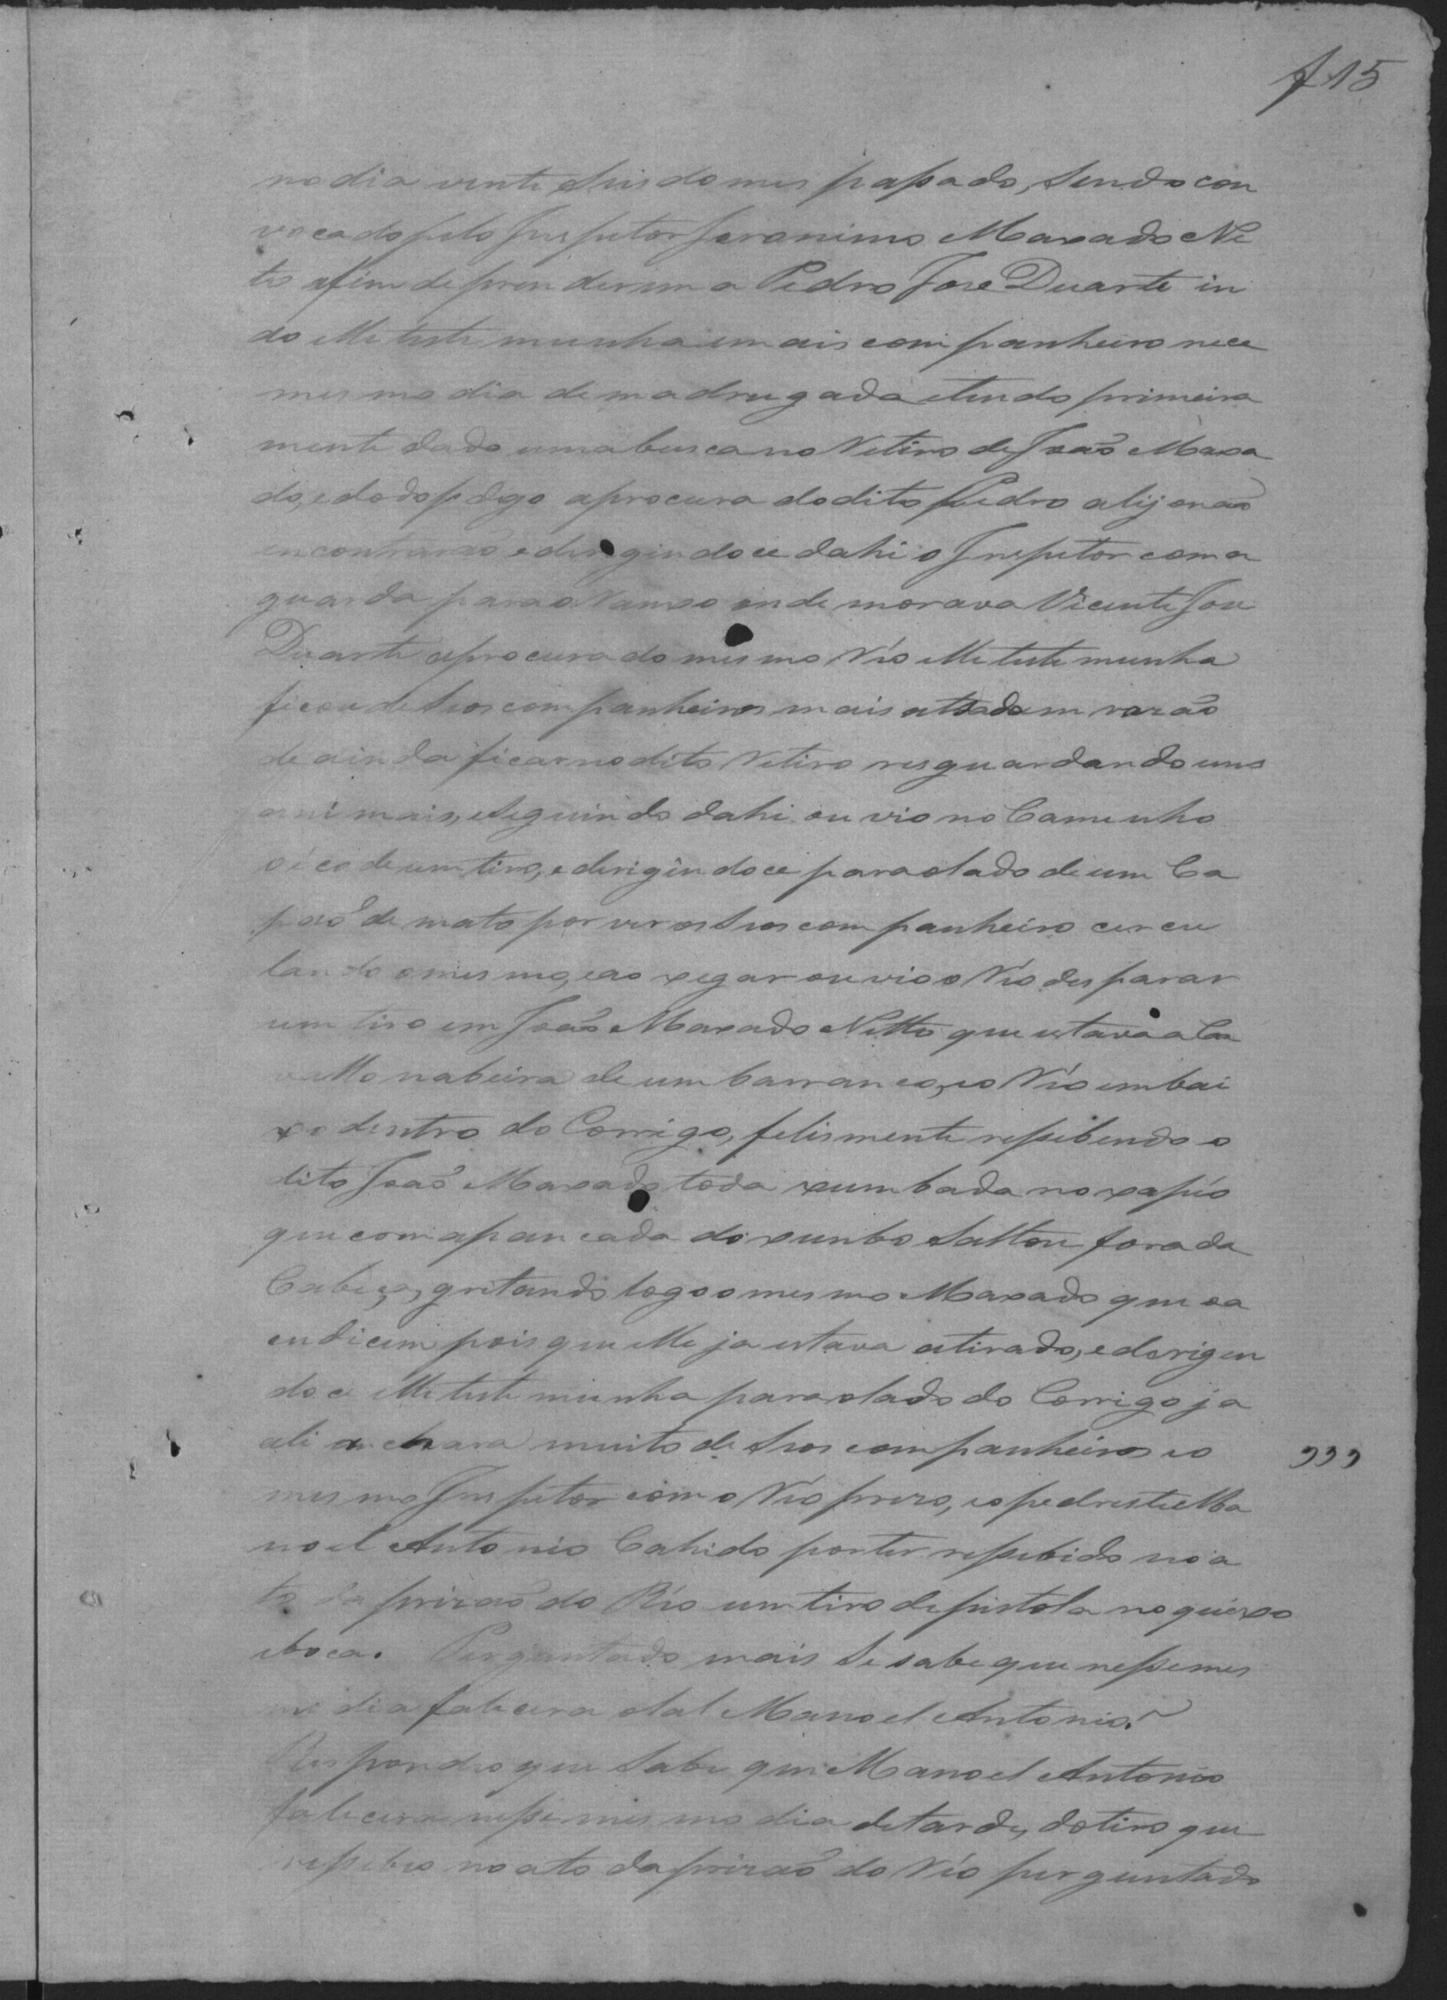 f 15
no dia vinte seis do mes passado, sendo con
vocado pelo Inspetor Jeronimo Maxado Ne
to afim de prenderem a Pedro Jose Duarte in
do elle testemunha e mais companheiro nece
mesmo dia de madrugada e tendo primeira
mente dado uma busca no Retiro de João Maxa
do, e do dopôgo a procura do dito Pedro ali jonão
encontrarão e dirigindoce dahi o Inspetor com a
guarda para o Ranxo onde morava Vicente Jose
Duarte a procura do mesmo Réo elle testemunha
ficou de seos companheiros mais atrado em razão
de ainda ficar no dito Retiro resguardando uns
animais, e seguindo dahi ouvio no Caminho
o éco de um tiro, e derigindoce para o lado de um Ca
pão de mato por ver os seos companheiro cercu
lando o mesmo, e ao xegar ouvio o Réo desparar
um tiro em João Maxado Netto que estava a Ca
vallo na beira de um barranco, e o Réo embai
xo dentro do Corrigo, felismente ressebendo o
dito João Maxado toda xumbada no xapéo
que com a pancada do xumbo saltou fora da
Cabeça, gritando logo o mesmo Maxado que oa
cudicem pois que elle ja estava atirado, e derigin
doce elle testemunha para o lado do Corrigo ja
ali axara muito de seos companheiros e o
mesmo Inspetor com o Réo prezo, e o pedreste Ma
noel Antonio Cahido por ter ressebido no a
to da prizão do Réo um tiro de pistola no queixo
e boca. Perguntado mais se sabe que nesse mes
mo dia falecera o tal Manoel Antonio?
Respondeo que sabe que Manoel Antonio
falecera nesse mesmo dia de tarde, do tiro que
ressebeo no ato da prizão do Réo perguntado